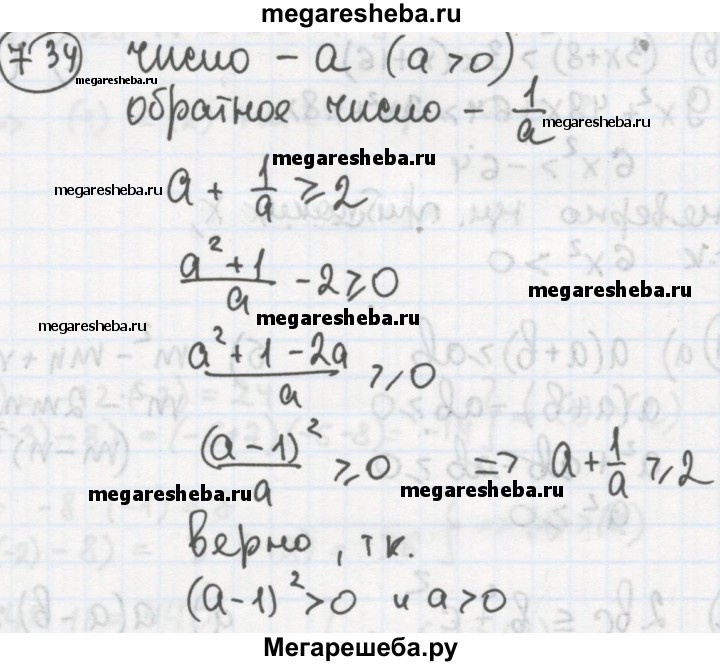 megaresheba.ru
734 число – a (a>0)
megaresheba.ru
обратное число – 1/a
megaresheba.ru
megaresheba.ru
megaresheba.ru
a + 1/a ⩾ 2
(a² + 1)/a - 2 ⩾ 0
megaresheba.ru
megaresheba.ru
megaresheba.ru
(a² + 1 - 2a)/a ⩾ 0
(a - 1)²/a ⩾ 0 => a + 1/a ⩾ 2
megaresheba.ru
megaresheba.ru
верно, т.к.
(a-1)² > 0 и a > 0
Мегарешеба.ру